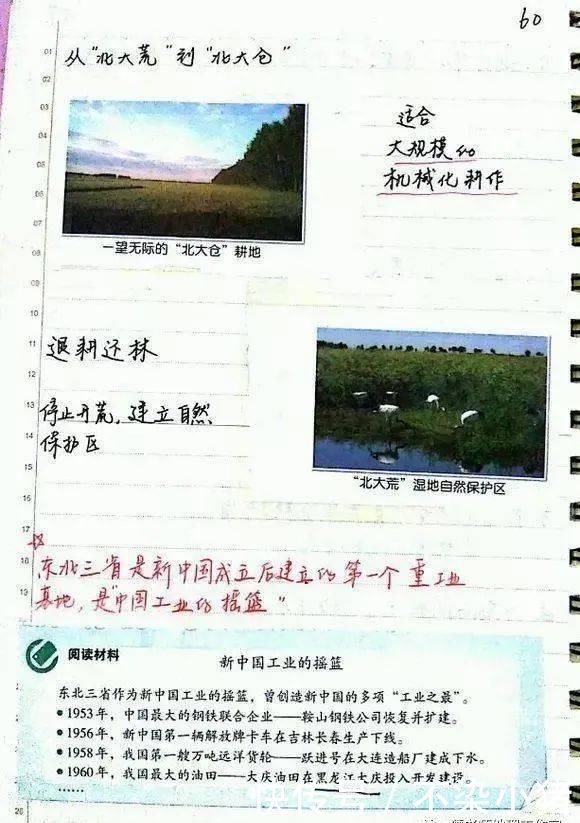 60
从“北大荒”到“北大仓”
适合
大规模的
机械化耕作
一望无际的“北大仓”耕地
退耕还林
停止开荒，建立自然
保护区
“北大荒”湿地自然保护区
东北三省是新中国成立后建立的第一个重工业
基地，是“中国工业的摇篮”
阅读材料
新中国工业的摇篮
东北三省作为新中国工业的摇篮，曾创造新中国的多项“工业之最”。
●1953年，中国最大的钢铁联合企业——鞍山钢铁公司恢复并扩建。
●1956年，新中国第一辆解放牌卡车在吉林长春生产下线。
●1958年，我国第一艘万吨远洋货轮——跃进号在大连造船厂建成下水。
●1960年，我国最大的油田——大庆油田在黑龙江大庆投入开发建设。
……
快传号 / 不染小